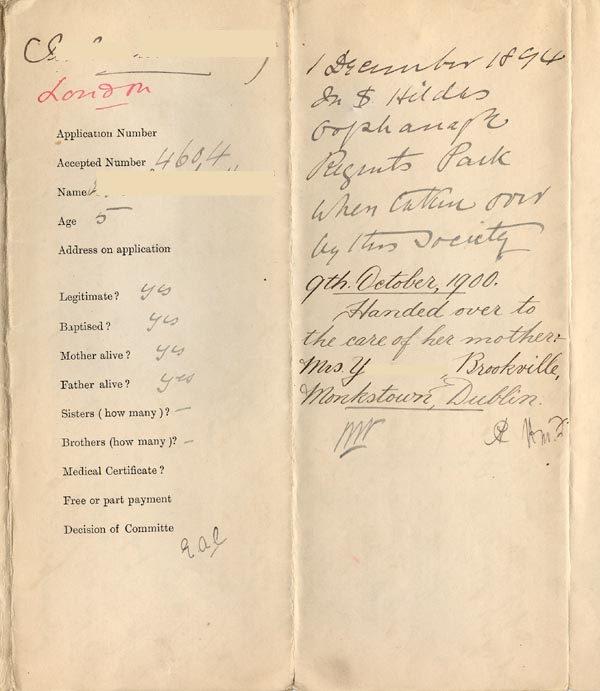 London
Application Number
Accepted Number 4604
Name
Age 5
Address on application
Legitimate? yes
Baptised? yes
Mother alive? yes
Father alive? yes
Sisters (how many)? –
Brothers (how many)? –
Medical Certificate?
Free or part payment
Decision of Committe
1 December 1894
In St Hildas
Orphanage
Regents Park
when taken over
by this Society
9th. October, 1900.
Handed over to
the care of her mother:-
Mrs. Y , Brookville,
Monkstown, Dublin.